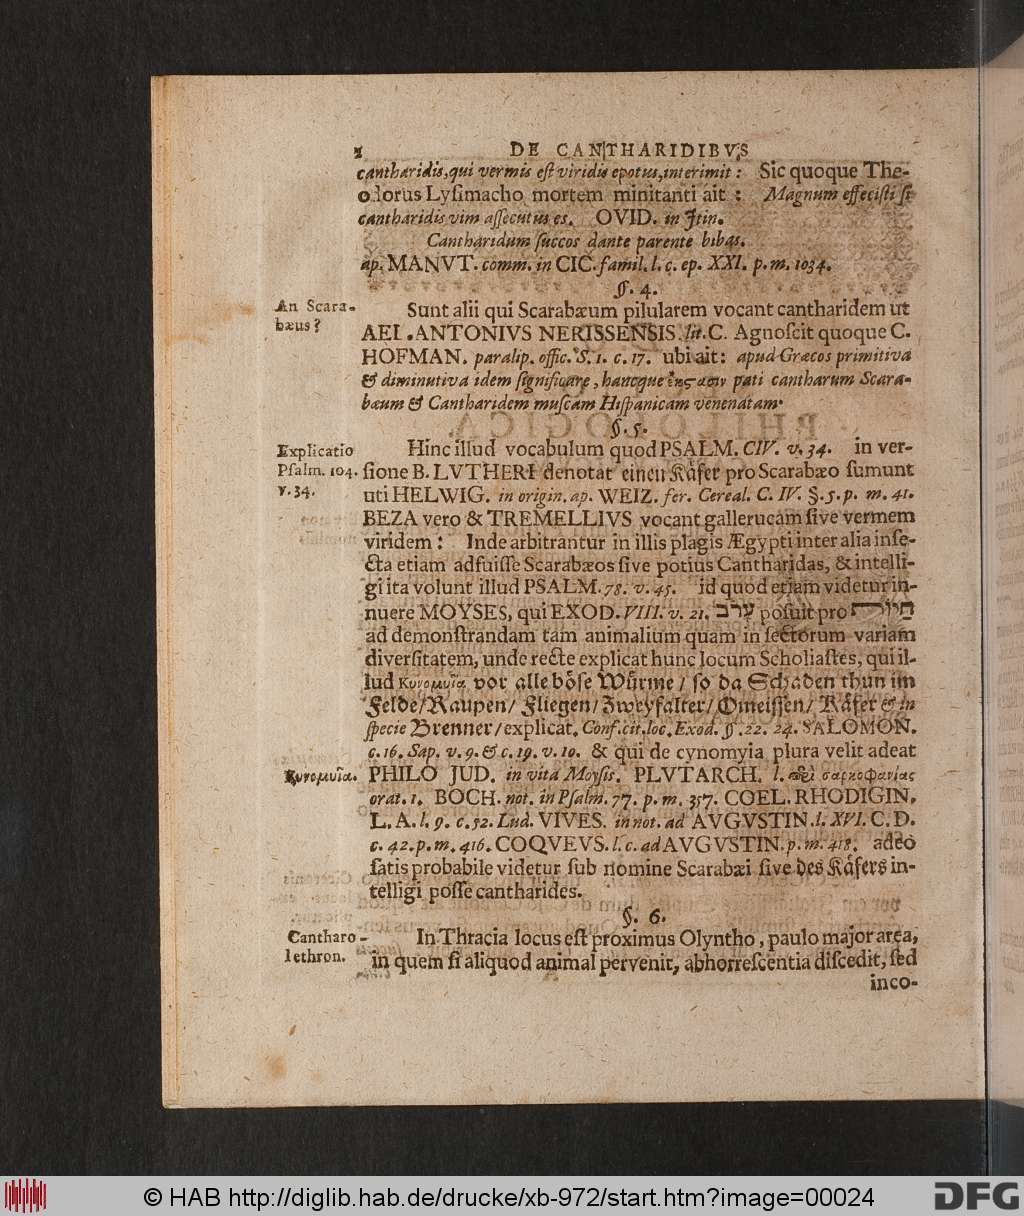 DE CANTHARIDIBVS
cantharidis, qui vermis eſt viridis epotus, interimit: Sic quoque The-
odorus Lyſimacho mortem minitanti ait: Magnum effeciſti ſi
cantharidis vim aſſecutus es. OVID. in Itin.
Cantharidum ſuccos dante parente bibas.
ap. MANVT. comm. in CIC. famil. l. ç. ep. XXI. p. m. 1034.
§. 4.
An Scara-
bæus?
Sunt alii qui Scarabæum pilularem vocant cantharidem ut
AEL. ANTONIVS NERISSENSIS. lit. C. Agnoſcit quoque C.
HOFMAN. paralip. offic. S. 1. c. 17. ubi ait: apud Græcos primitiva
& diminutiva idem ſignificare, hancque pati cantharum Scara-
bæum & Cantharidem muſcam Hiſpanicam venenatam.
§. 5.
Explicatio
Pſalm. 104.
v. 34.
Hinc illud vocabulum quod PSALM. CIV. v. 34. in ver-
ſione B. LVTHERI denotat einen Kåfer pro Scarabæo ſumunt
uti HELWIG. in origin. ap. WEIZ. fer. Cereal. C. IV. §. 5. p. m. 41.
BEZA vero & TREMELLIVS vocant gallerucam ſive vermem
viridem: Inde arbitrantur in illis plagis Ægypti inter alia inſe-
cta etiam adfuiſſe Scarabæos ſive potius Cantharidas, & intelli-
gi ita volunt illud PSALM. 78. v. 45. id quod etiam videtur in-
nuere MOYSES, qui EXOD. VIII. v. 21. ערב poſuit pro
ad demonſtrandam tam animalium quam inſectorum variam
diverſitatem, unde recte explicat hunc locum Scholiaſtes, qui il-
lud Κυνομυῖα vor alle bȯſe Wůrme / ſo da Schaden thun im
Felde / Raupen / Fliegen / Zweyfalter / Omeiſſen / Kåfer & in
ſpecie Brenner / explicat. Conf. cit. loc. Exod. §. 22. 24. SALOMON.
c. 16. Sap. v. 9. & c. 19. v. 10. & qui de cynomyia plura velit adeat
Κυνομυῖα.
PHILO JUD. in vita Moyſis. PLVTARCH. l. περὶ σαρκοφανίας
orat. 1. BOCH. not. in Pſalm. 77. p. m. 357. COEL. RHODIGIN.
L. A. l. 9. c. 52. Lud. VIVES. in not. ad AVGVSTIN. l. XVI. C. D.
c. 42. p. m. 416. COQVEVS. l. c. ad AVGVSTIN. p. m. 418. adeò
ſatis probabile videtur ſub nomine Scarabæi ſive des Kåfers in-
telligi poſſe cantharides.
§. 6.
Cantharo-
lethron.
In Thracia locus eſt proximus Olyntho, paulo major area,
in quem ſi aliquod animal pervenit, abhorreſcentia diſcedit, ſed
inco-
© HAB http://diglib.hab.de/drucke/xb-972/start.htm?image=00024
DFG